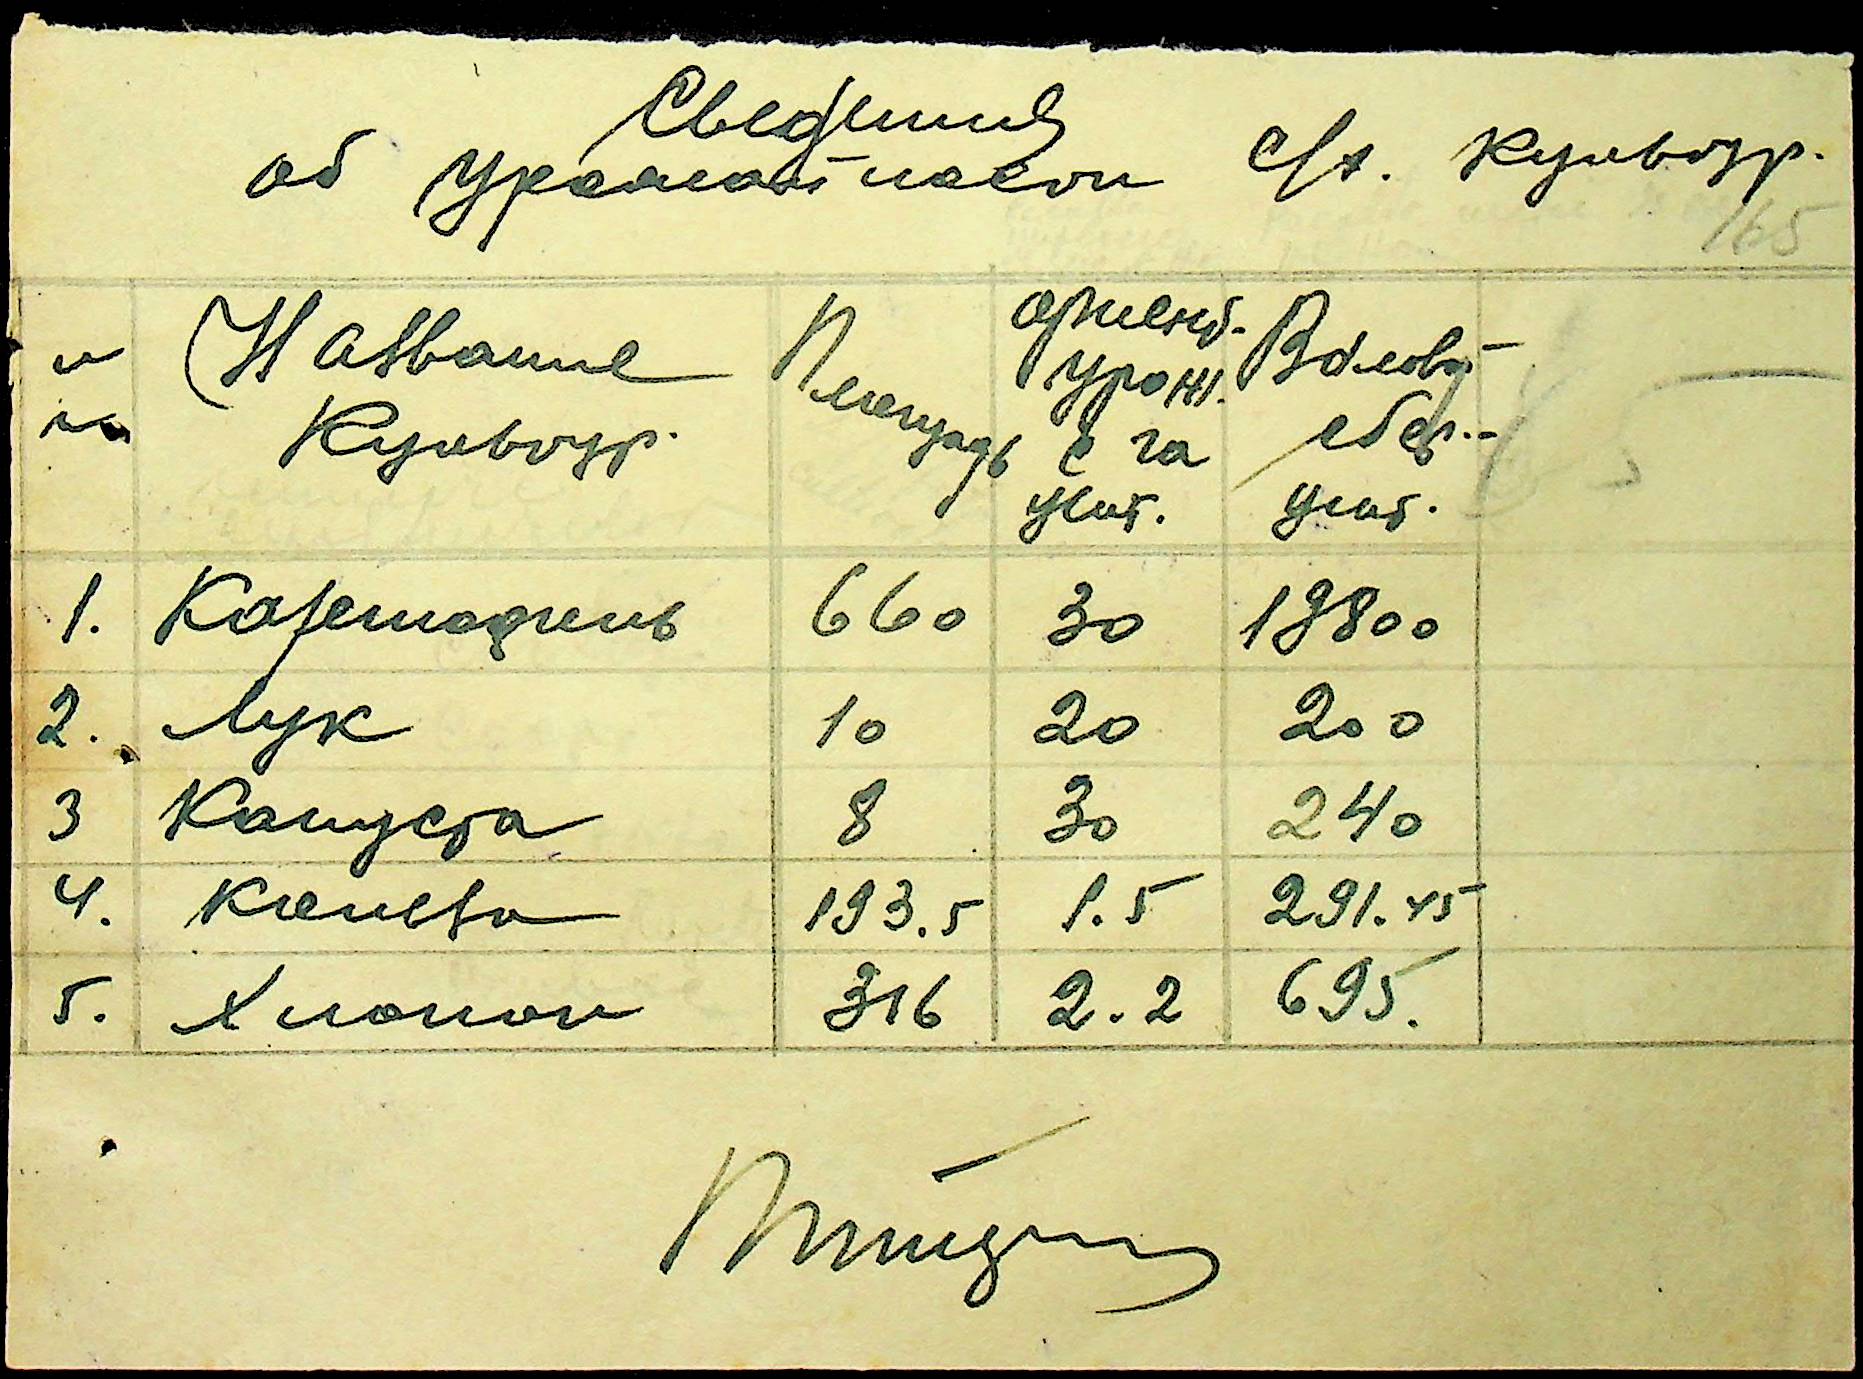 Сведения
об урожайности с/х. культур.
165
Название
Культур.
Площадь
ориент.
урож.
с га
цнт.
Валовой
сбор.
цнт.
1. Картофель 660 30 19800
2. Лук 10 20 200
3 Капуста 8 30 240
4. 193.5 1.5 291.45
5. Хлопок 316 2.2 695.